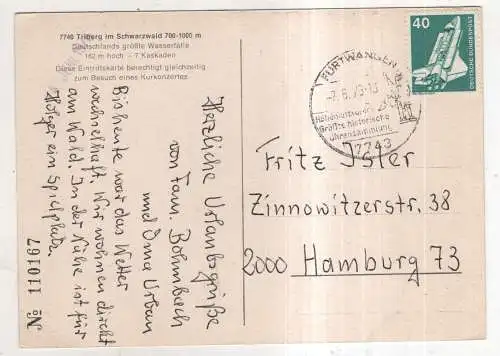 7740 Triberg im Schwarzwald 700-1000 m
Deutschlands größte Wasserfälle
162 m hoch — 7 Kaskaden
Diese Eintrittskarte berechtigt gleichzeitig
zum Besuch eines Kurkonzertes
Herzliche Urlaubsgrüße
von Fam. Bohmbach
und Oma Urban
Bis heute war das Wetter
wechselhaft. Wir wohnen direkt
am Wald. In der Nähe ist für
Holger ein Spielplatz.
№ 110197
FURTWANGEN
Größte historische
Uhrensammlung
7743
40
DEUTSCHE BUNDESPOST
Fritz Ister
Zinnowitzerstr. 38
2000 Hamburg 73